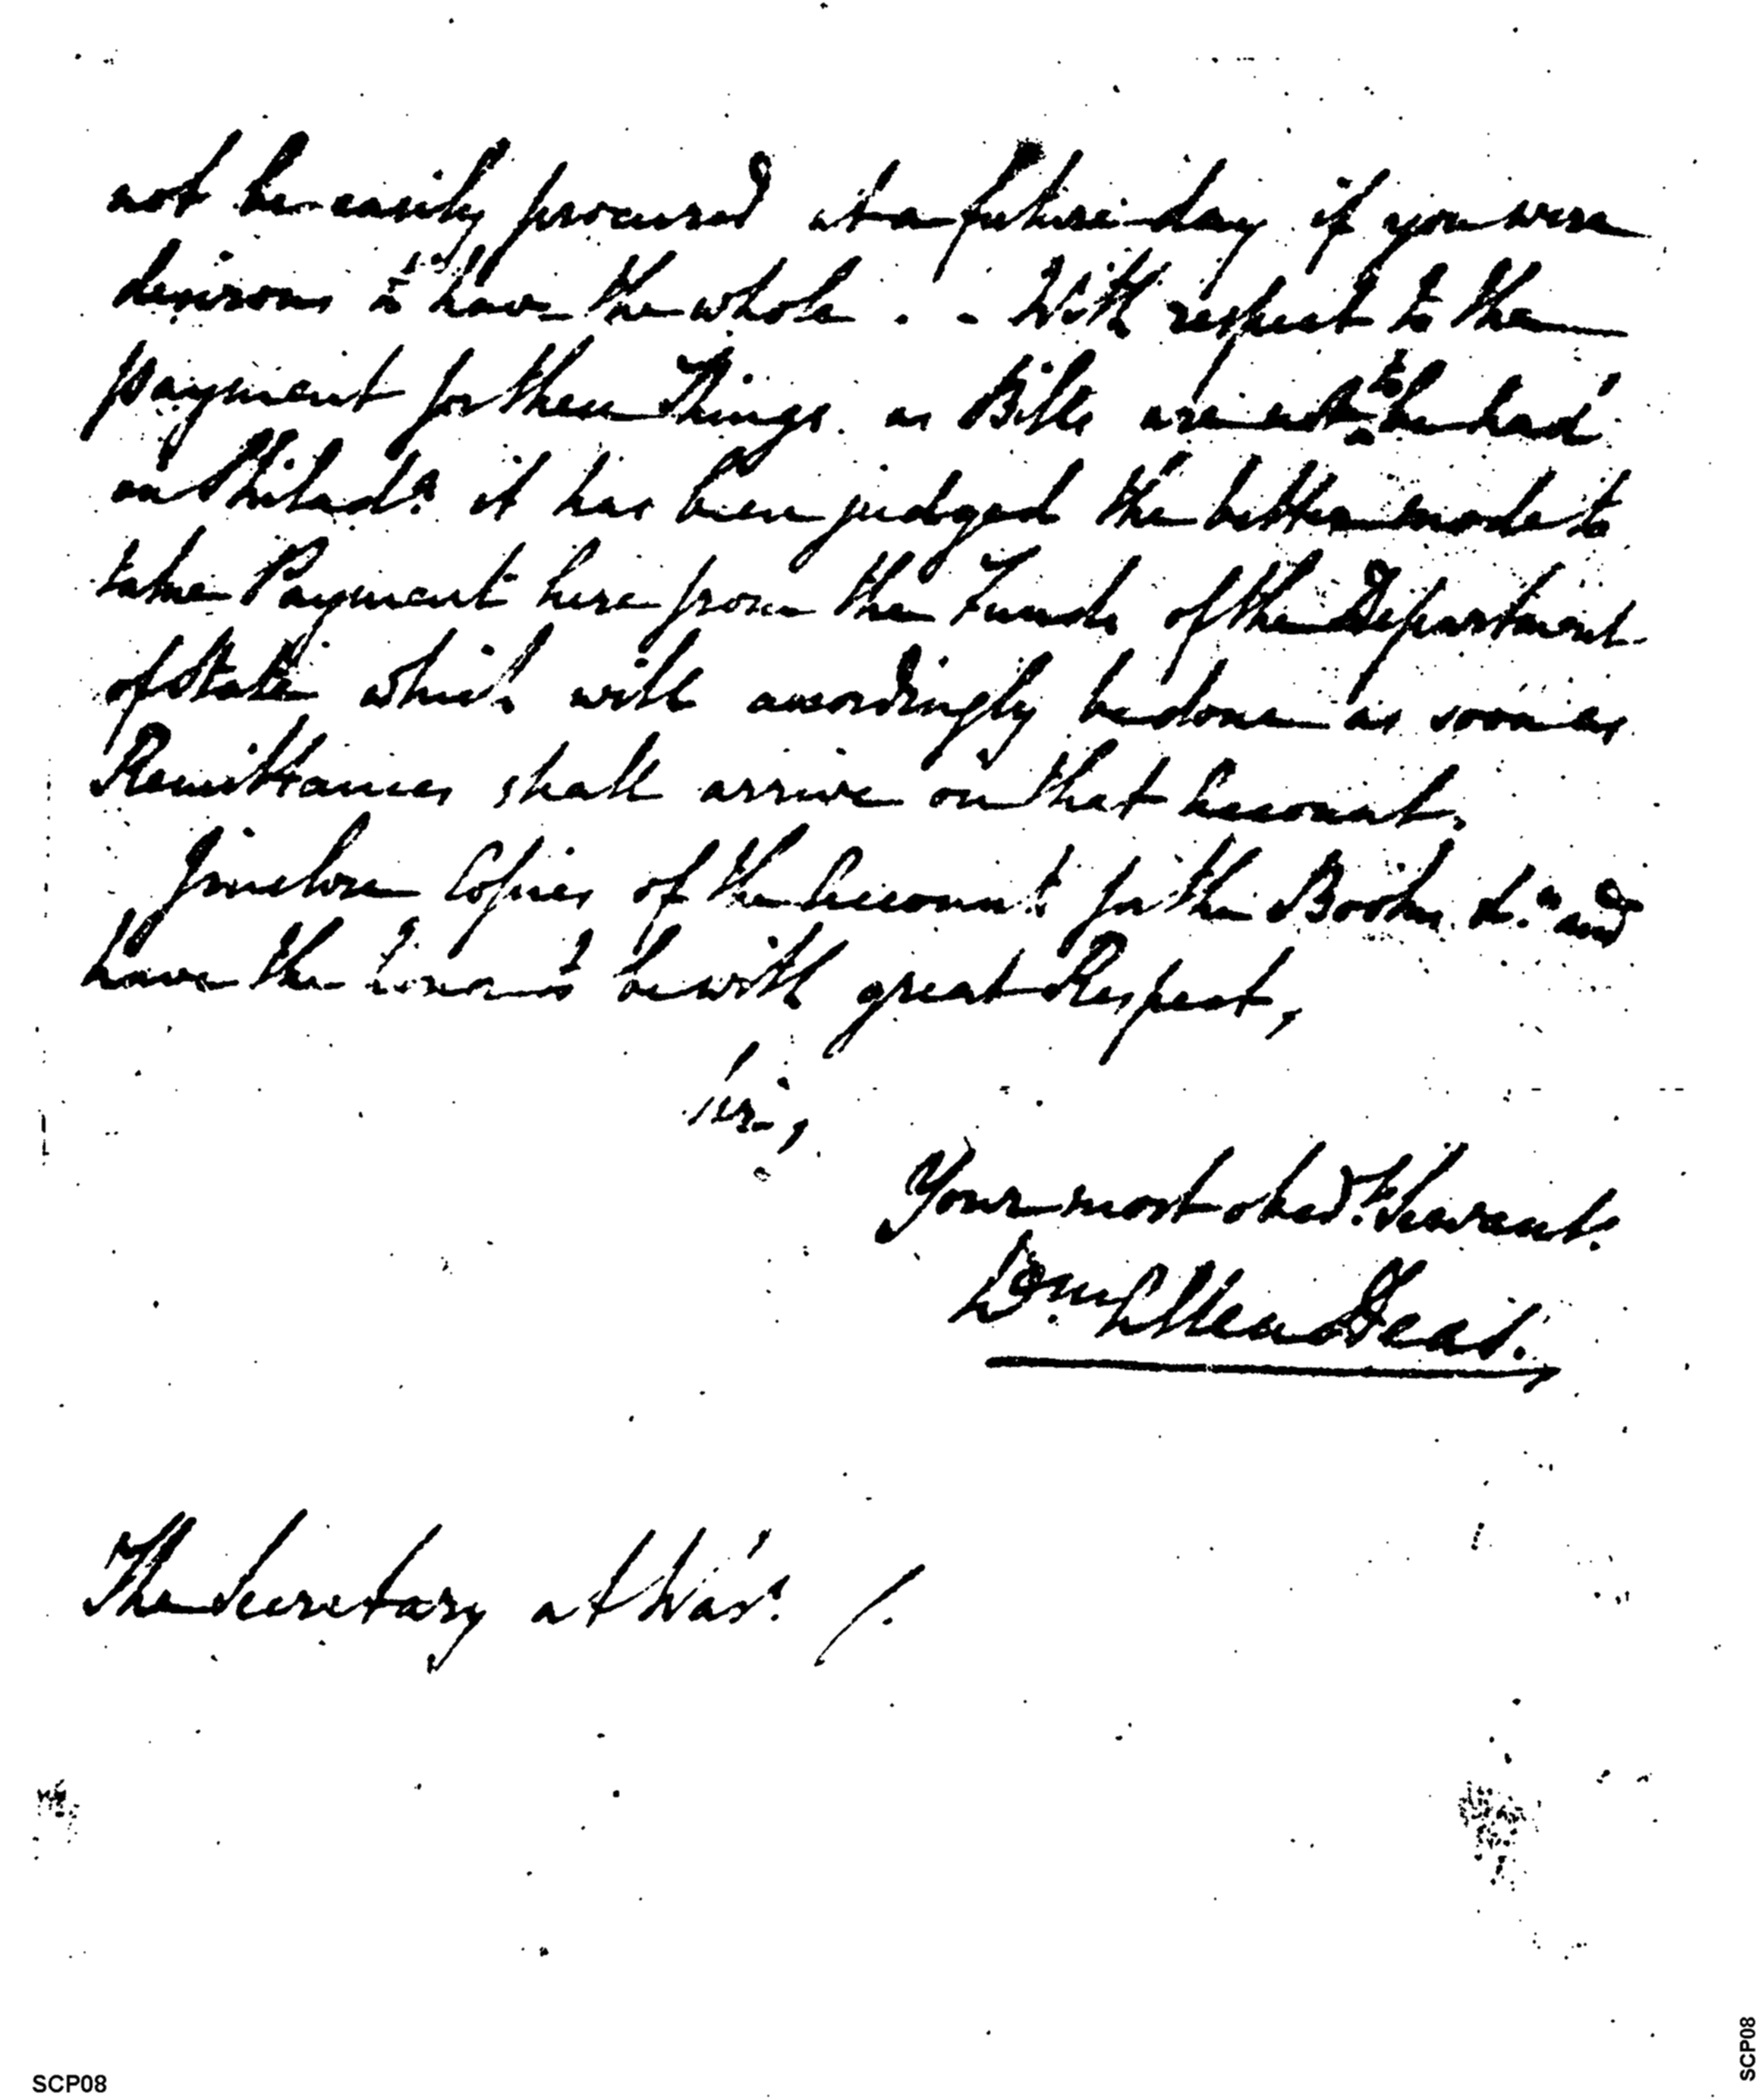 not be easily procured at a future day if you were
desirous to have the whole. - With respect to the
Payment for these Things, as Bills are not to be had
on Philad.ª it has been judged the better mode to
take Payment here from the Funds of the Department
of State which will accordingly be done as soon as
Remittances shall arrive on that Account.
I inclose Copies of the Account for the Books &.ª and
have the honor to be with great Respect,
Sir,
Your most obed.t Servant.
The Secretary at War. /.
SCP08
SCP08